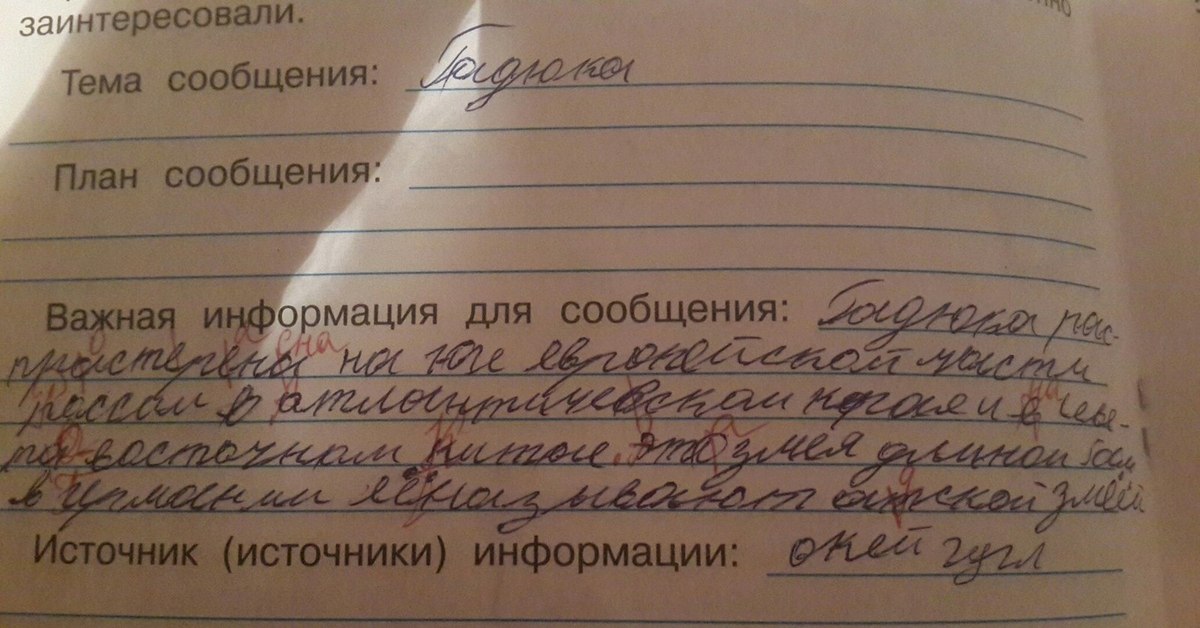 заинтересовали.
Тема сообщения: Гадюка
План сообщения:
Важная информация для сообщения: Гадюка рас-
прастерена на юге еврокейской части
россии в атлоынтичевском краае и в севе-
ро восточнам китае. это змея длиной
в германии её называют атской змеёй
Источник (источники) информации: окей гугл